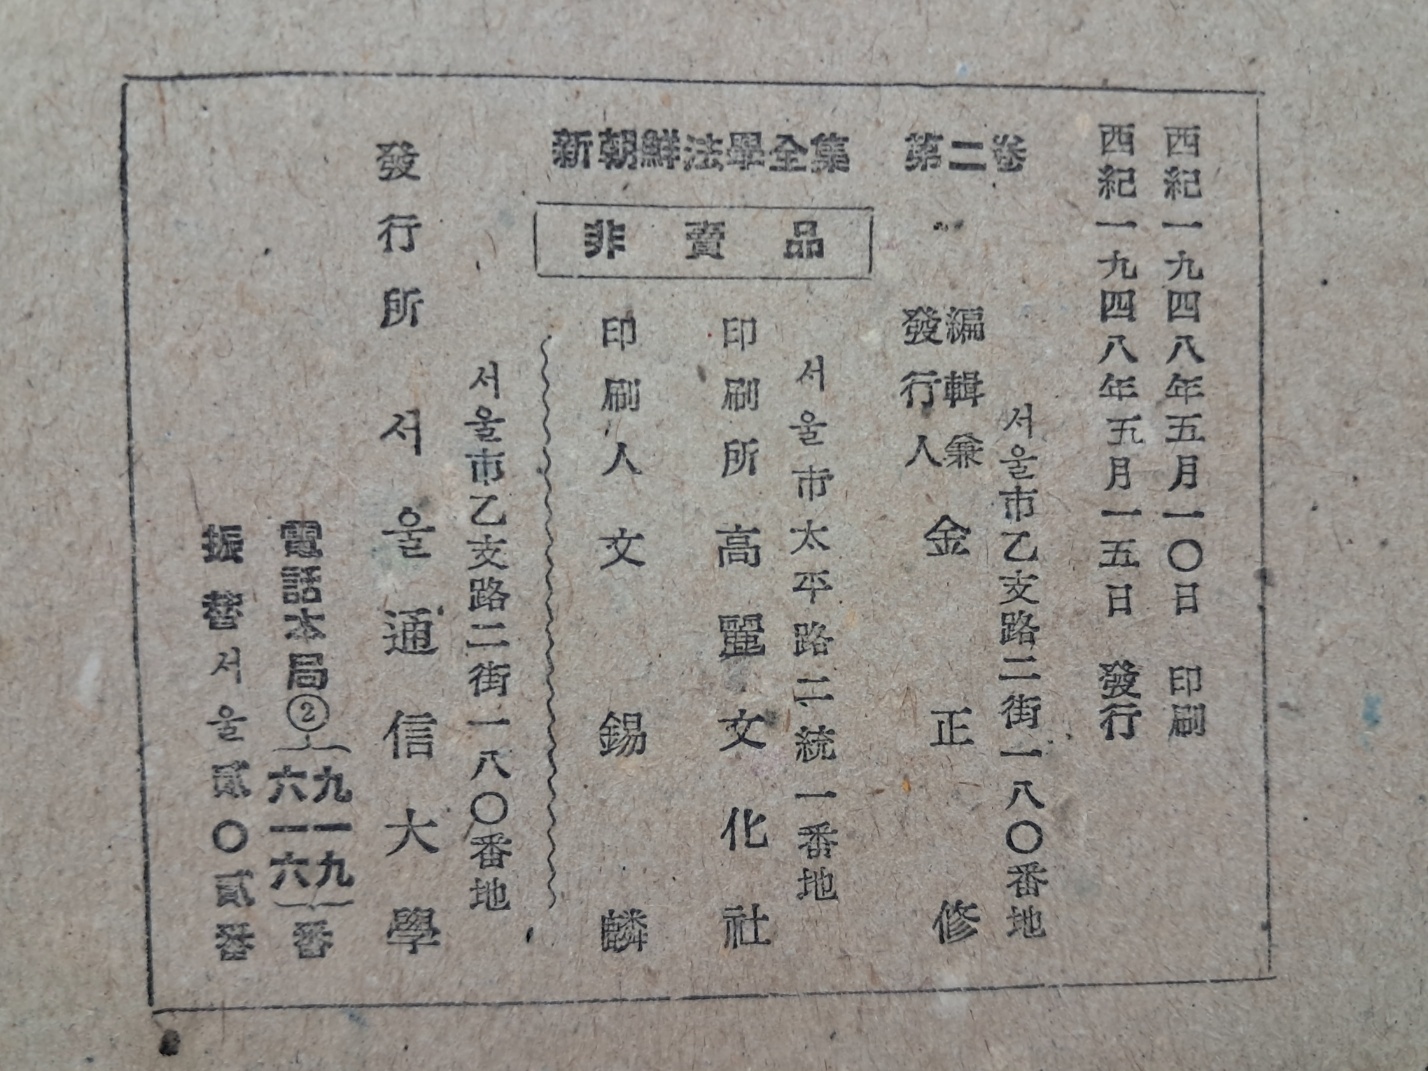 西紀一九四八年五月一〇日 印刷
西紀一九四八年五月一五日 發行
新朝鮮法學全集 第二卷
非賣品
서울市乙支路二街一八〇番地
編輯兼
發行人 金正修
서울市太平路二統一番地
印刷所 高麗文化社
印刷人 文錫麟
서울市乙支路二街一八〇番地
發行所 서울通信大學
電話本局② 九一九
六一六 番
振替서울貳〇貳番